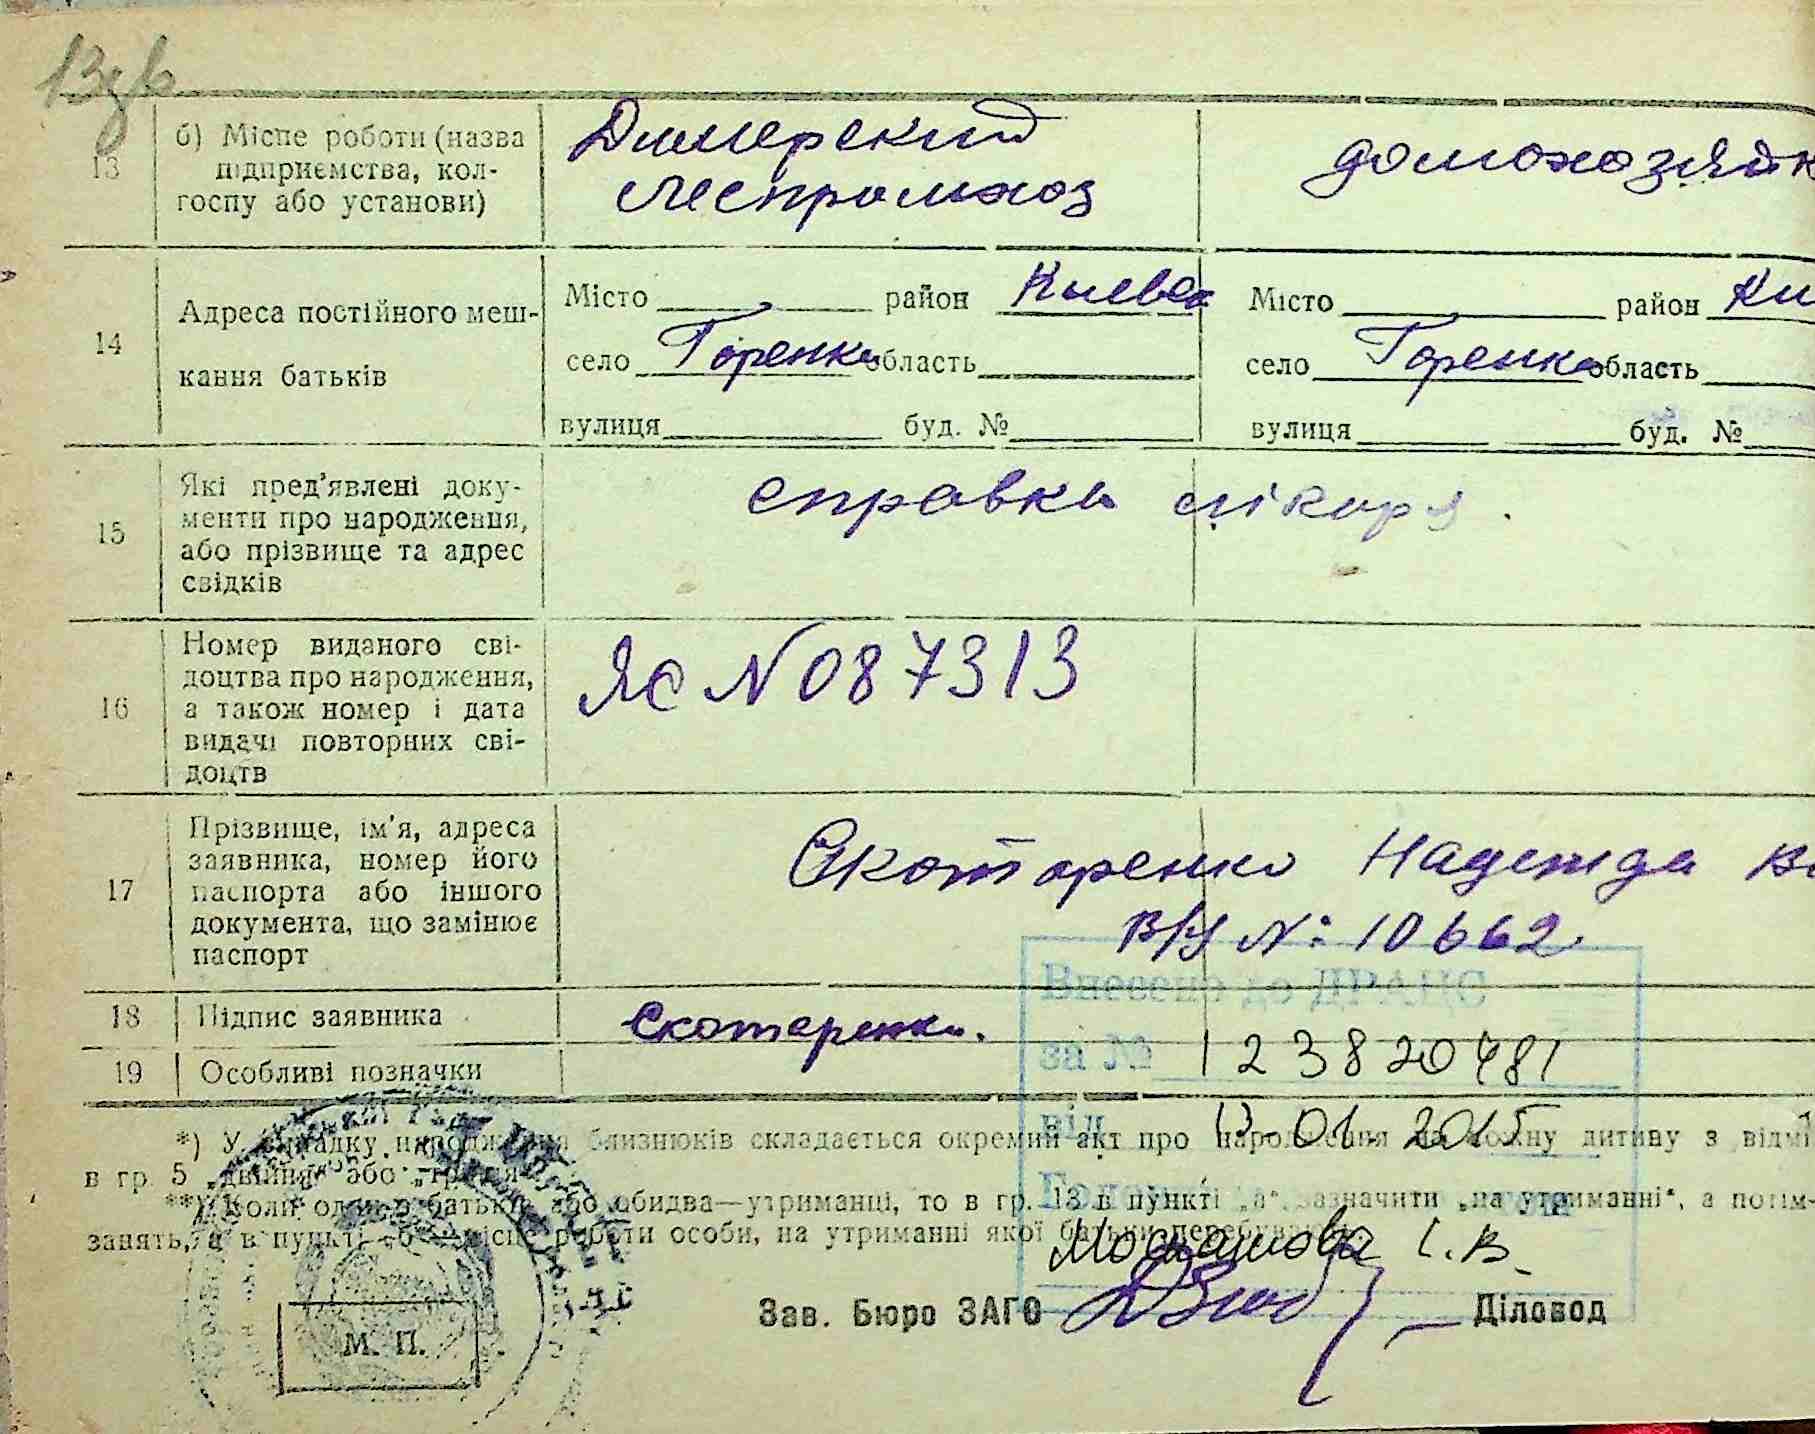 13
б) Місце роботи (назва
підприємства, кол-
госпу або установи)
Димерский
леспромхоз
домохозяйк
14
Адреса постійного меш-
кання батьків
Місто район Киевск
село Горенка область
вулиця буд. №
Місто район Ки
село Горенка область
вулиця буд. №
15
Які пред'явлені доку-
менти про народження,
або прізвище та адрес
свідків
справка лікаря.
16
Номер виданого сві-
доцтва про народження,
а також номер і дата
видачі повторних сві-
доцтв
ЯС N 087313
17
Прізвище, ім'я, адреса
заявника, номер його
паспорта або іншого
документа, що замінює
паспорт
Скотаренко Надежда
N: 10662.
18 Підпис заявника
Скотаренко.
19 Особливі позначки
Внесено до ДРАЦС
за № 123820481
від 13.01.2015
*) У випадку народження близнюків складається окремий акт про народження на кожну дитину з відмі
в гр. 5 „двійня“ або „трійня“
**) Коли один з батьків або обидва—утриманці, то в гр. 13 в пункті „а“ зазначити „на утриманні“, а потім
занять, а в пункті „б“ місце роботи особи, на утриманні якої батьки перебувають.
І. В.
Зав. Бюро ЗАГС
Діловод
М. П.